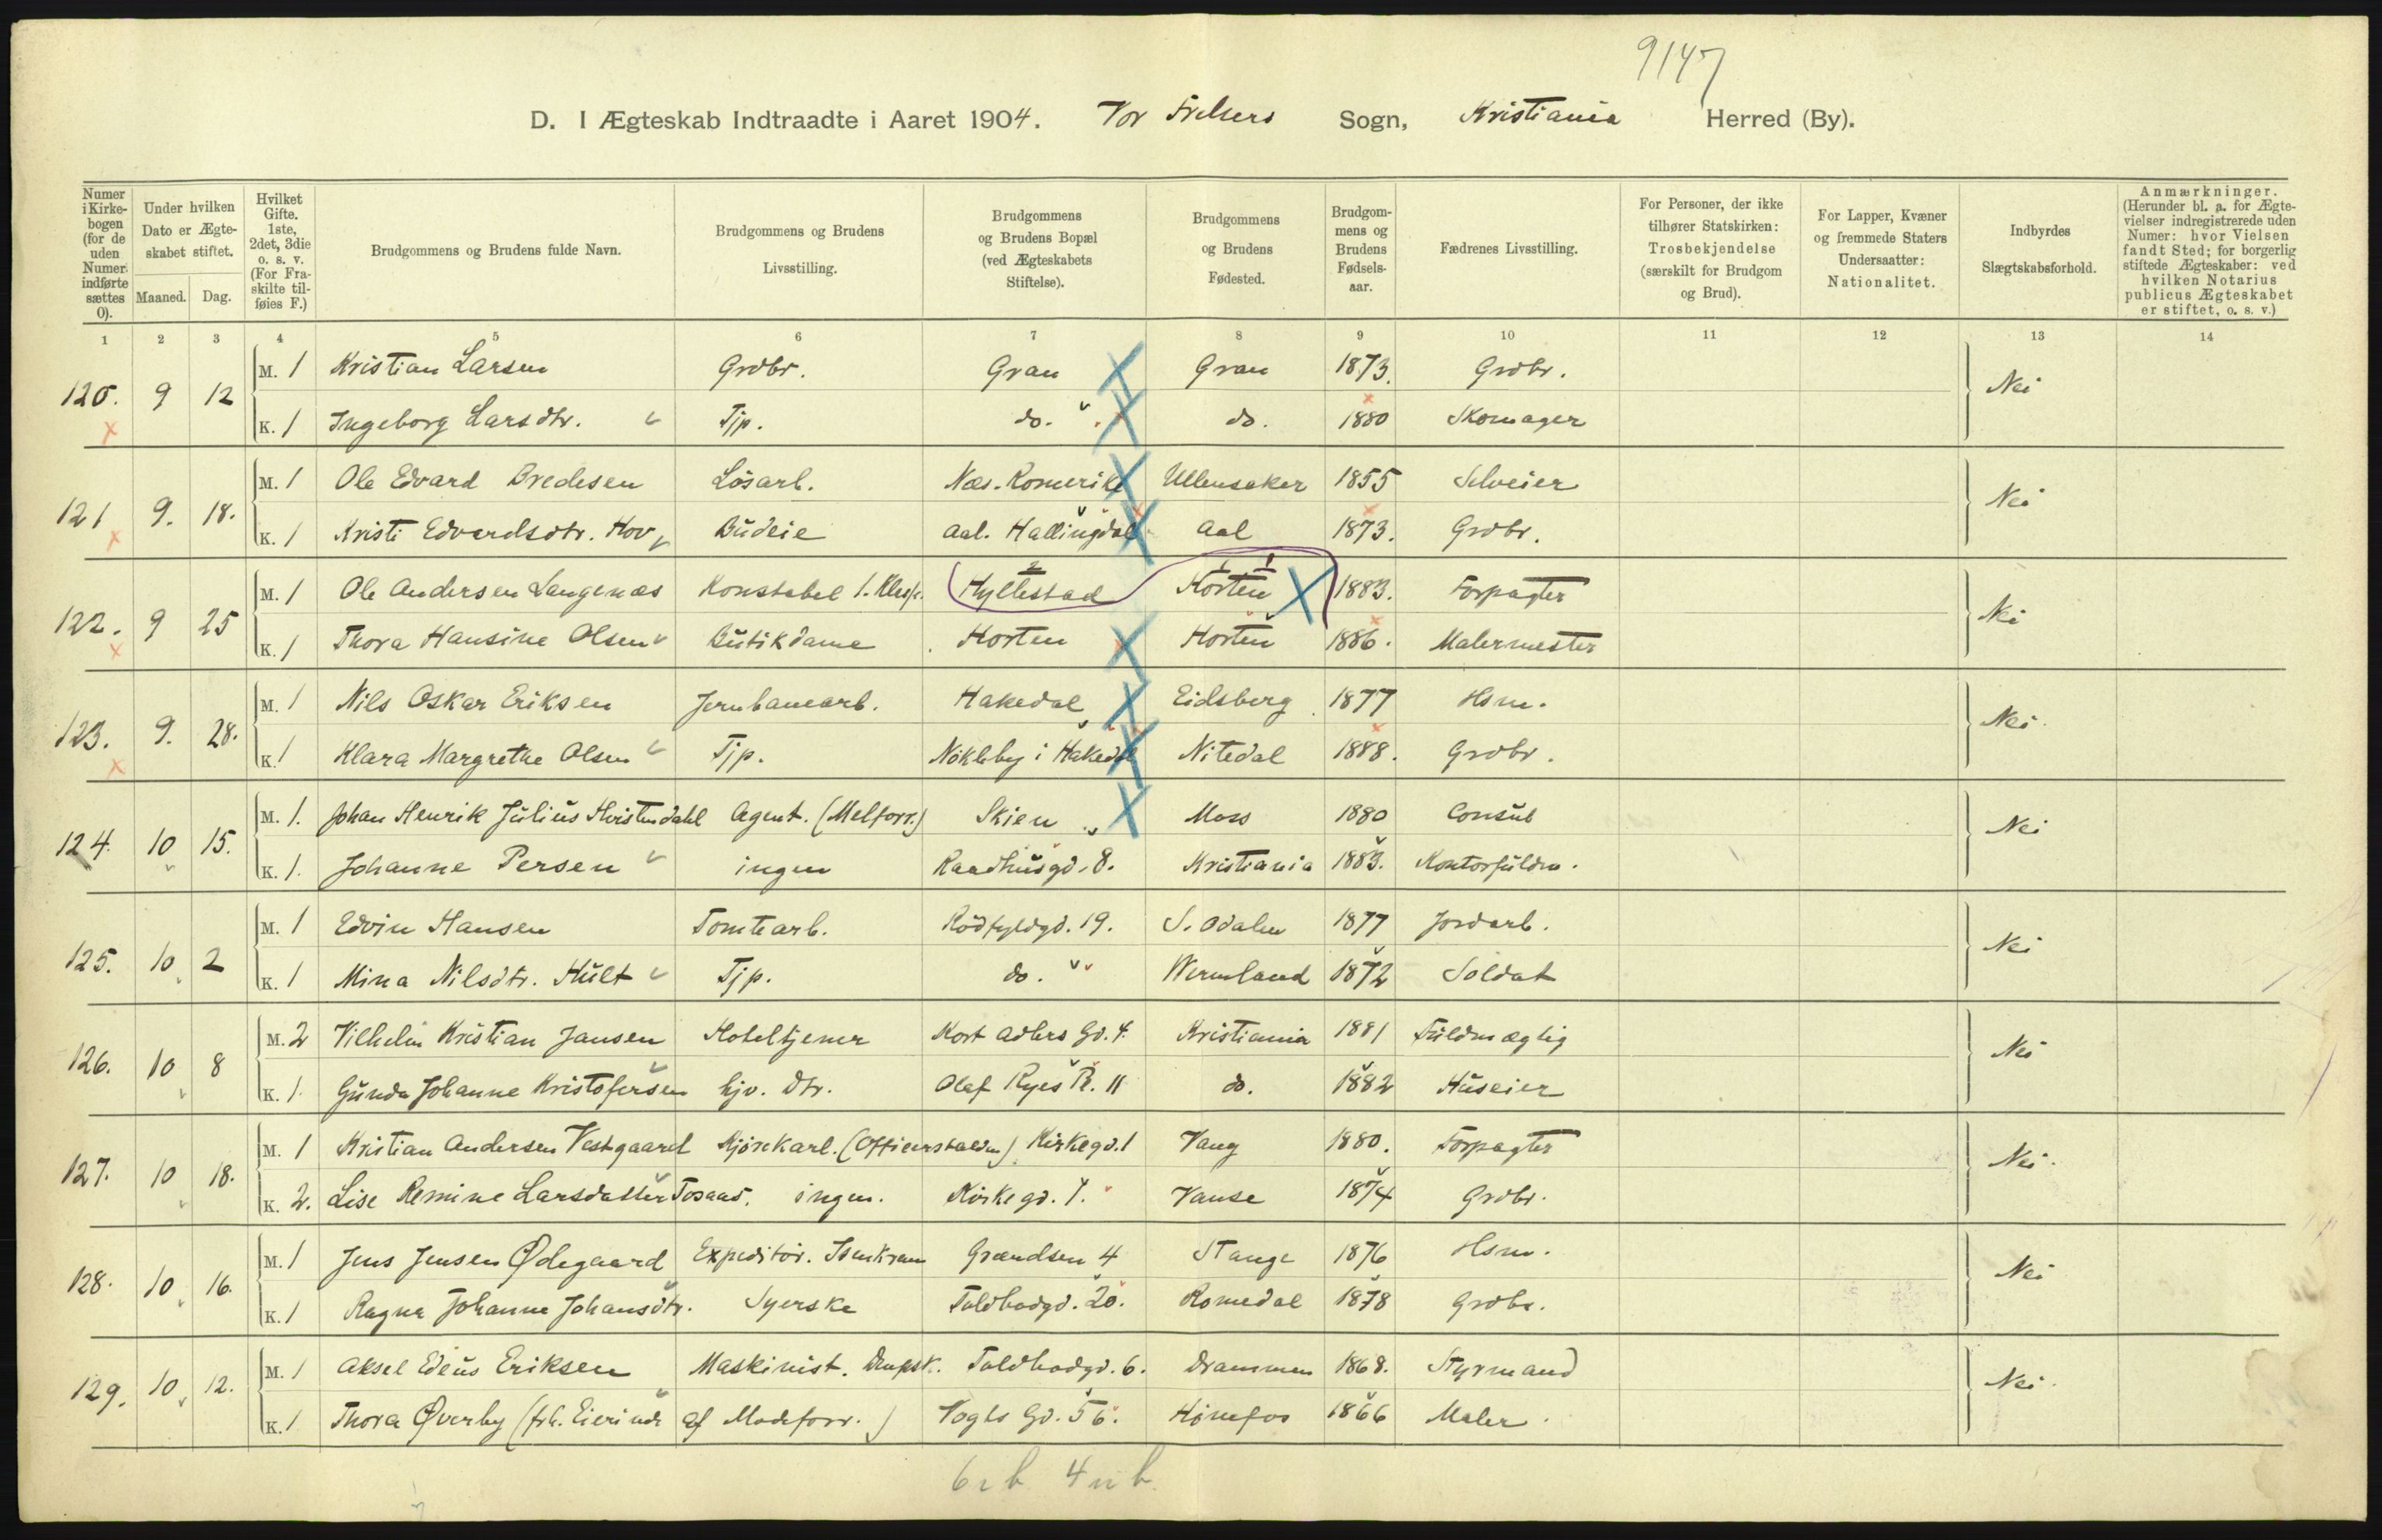 9147
D. I Ægteskab Indtraadte i Aaret 1904. Vor Frelsers Sogn, Kristiania Herred (By).
Numer i Kirke-bogen (for de uden Numer indførte sættes 0). Under hvilken Dato er Ægte-skabet stiftet. Maaned. Dag. Hvilket Gifte. 1ste, 2det, 3die o. s. v. (For Fra-skilte til-føies F.) Brudgommens og Brudens fulde Navn. Brudgommens og Brudens Livsstilling. Brudgommens og Brudens Bopæl (ved Ægteskabets Stiftelse). Brudgommens og Brudens Fødested. Brudgom-mens og Brudens Fødsels-aar. Fædrenes Livsstilling. For Personer, der ikke tilhører Statskirken: Trosbekjendelse (særskilt for Brudgom og Brud). For Lapper, Kvæner og fremmede Staters Undersaatter: Nationalitet. Indbyrdes Slægtskabsforhold. Anmærkninger. (Herunder bl. a. for Ægte-vielser indregistrerede uden Numer: hvor Vielsen fandt Sted; for borgerlig stiftede Ægteskaber: ved hvilken Notarius publicus Ægteskabet er stiftet, o. s. v.)
1 2 3 4 5 6 7 8 9 10 11 12 13 14
M. 1 Kristian Larsen Grdbr. Gran Gran 1873. Grdbr.
120. 9 12 Nei
K. 1 Ingeborg Larsdtr. Tjp. do. do. 1880 Skomager
M. 1 Ole Edvard Bredesen Løsarb. Næs. Romerike Ullensaker 1855 Selveier
121 9. 18. Nei
K. 1 Kristi Edvardsdtr. Hov Budeie Aal. Hallingdal Aal 1873. Grdbr.
M. 1 Ole Andersen Langenæs Konstabel 1. Klasse. Hyllestad 2 Horten 1 1883. Forpagter
122. 9 25 Nei
K. 1 Thora Hansine Olsen Butikdame Horten Horten 1886. Malermester
M. 1 Nils Oskar Eriksen Jernbanearb. Hakedal Eidsberg 1877 Hsm.
123. 9. 28. Nei.
K. 1 Klara Margrethe Olsen Tjp. Nökleby i Hakedal Nitedal 1888. Grdbr.
M. 1. Johan Henrik Julius Hvistendahl Agent. (Melforr.) Skien Moss 1880 Consul
124. 10 15. Nei
K. 1. Johanne Persen ingen Raadhusgd. 8. Kristiania 1883. Kontorfuldm.
M. 1 Edvin Hansen Tomtearb. Rödfyldgd. 19. S. Odalen 1877 Jordarb.
125. 10 2 Nei
K. 1 Mina Nilsdtr. Hult Tjp. do. Wermland 1872 Soldat
M. 2 Vilhelm Kristian Jansen Hoteltjener Kort Adlers Gd. 4. Kristiania 1881 Fuldmægtig
126. 10 8 Nei
K. 1. Gunda Johanne Kristofersen hjv. Dtr. Olaf Ryes Pl. 11 do. 1882 Huseier
M. 1 Kristian Andersen Vestgaard Kjørekarl. (Officerstalden) Kirkegd. 1 Vang 1880. Forpagter
127. 10 18. Nei.
K. 2. Lise Remine Larsdatter Tosaas. ingen. Kirkegd. 1. Vanse 1874 Grdbr.
M. 1 Jens Jensen Ødegaard Expeditør. Isenkram Grændsen 4 Stange 1876 Hsm.
128. 10 16. Nei
K. 1 Ragna Johanne Johansdtr. Syerske Toldbodgd. 20. Romedal 1878 Grdbr.
M. 1 Aksel Edeus Eriksen Maskinist. Dmpsk. Toldbodgd. 6. Drammen 1868. Styrmand
129. 10 12. Nei.
K. 1 Thora Øverby (frh. Eierinde af Modeforr.) Vogts Gd. 56. Hønefos 1866 Maler.